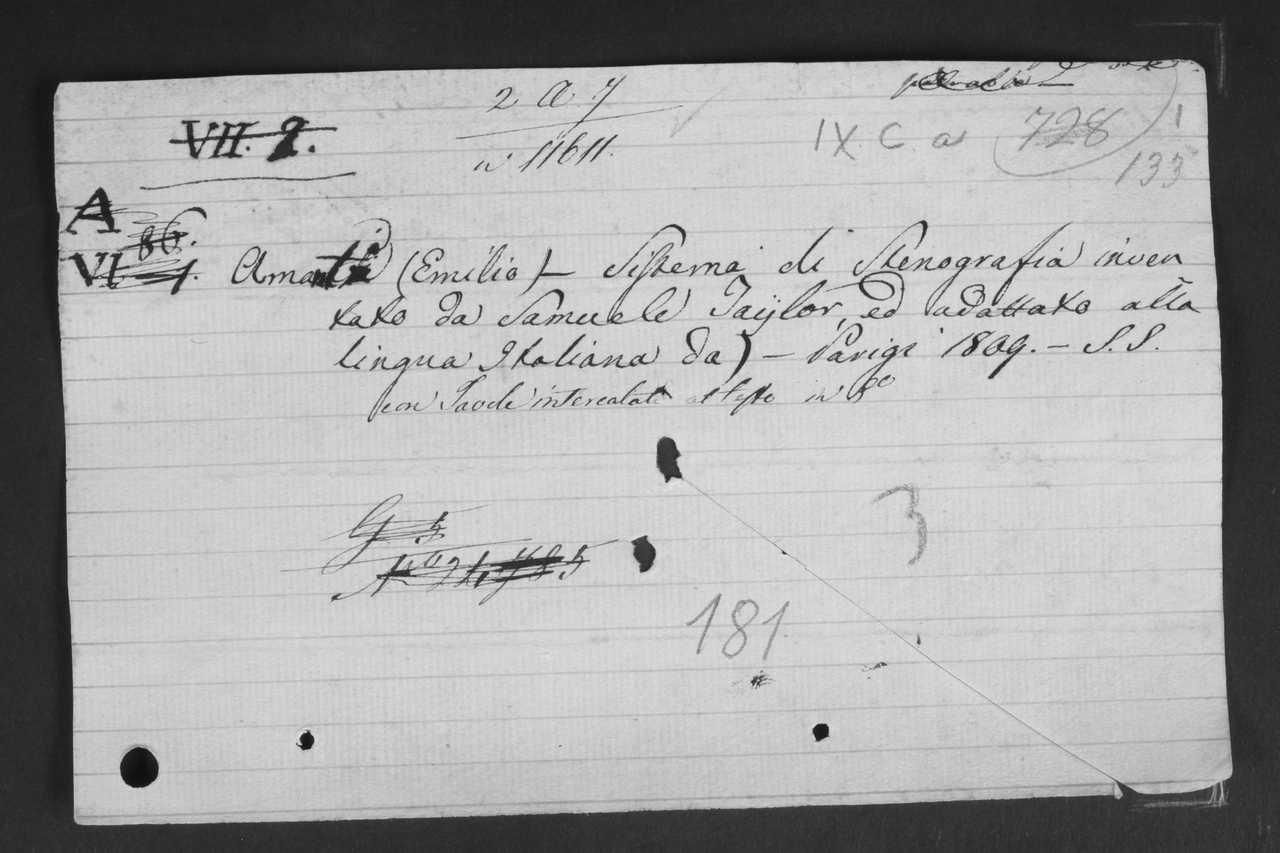 2 a 7
n 11611.
VII. 2.
IX. C. a 728 1
133
A
86.
VI
Amanti (Emilio) — Sistema di Stenografia inven
tato da Samuele Taÿlor, ed adattato alla
lingua Italiana da) — Parigi 1809. — S.S.
con Tavole intercalate al testo in 8º
G 5
3
181